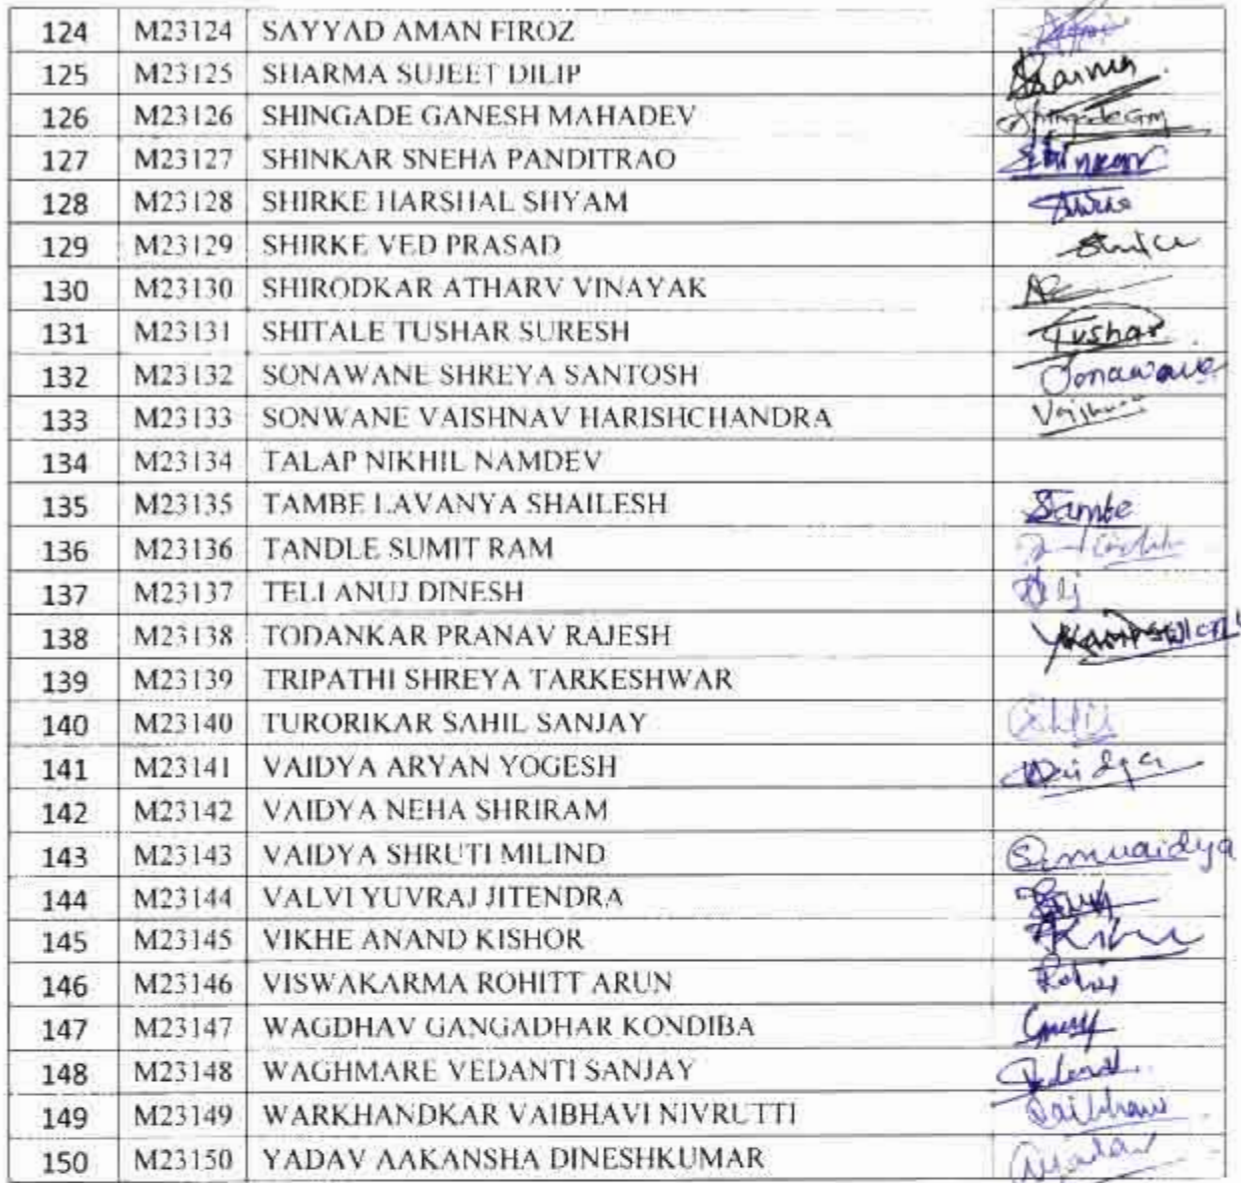 124 M23124 SAYYAD AMAN FIROZ
125 M23125 SHARMA SUJEET DILIP Sharma
126 M23126 SHINGADE GANESH MAHADEV
127 M23127 SHINKAR SNEHA PANDITRAO Shinkar
128 M23128 SHIRKE HARSHAL SHYAM
129 M23129 SHIRKE VED PRASAD
130 M23130 SHIRODKAR ATHARV VINAYAK
131 M23131 SHITALE TUSHAR SURESH Tushar
132 M23132 SONAWANE SHREYA SANTOSH Sonawane
133 M23133 SONWANE VAISHNAV HARISHCHANDRA
134 M23134 TALAP NIKHIL NAMDEV
135 M23135 TAMBE LAVANYA SHAILESH Tambe
136 M23136 TANDLE SUMIT RAM
137 M23137 TELI ANUJ DINESH
138 M23138 TODANKAR PRANAV RAJESH
139 M23139 TRIPATHI SHREYA TARKESHWAR
140 M23140 TURORIKAR SAHIL SANJAY
141 M23141 VAIDYA ARYAN YOGESH Vaidya
142 M23142 VAIDYA NEHA SHRIRAM
143 M23143 VAIDYA SHRUTI MILIND Smvaidya
144 M23144 VALVI YUVRAJ JITENDRA
145 M23145 VIKHE ANAND KISHOR
146 M23146 VISWAKARMA ROHITT ARUN
147 M23147 WAGDHAV GANGADHAR KONDIBA
148 M23148 WAGHMARE VEDANTI SANJAY
149 M23149 WARKHANDKAR VAIBHAVI NIVRUTTI
150 M23150 YADAV AAKANSHA DINESHKUMAR